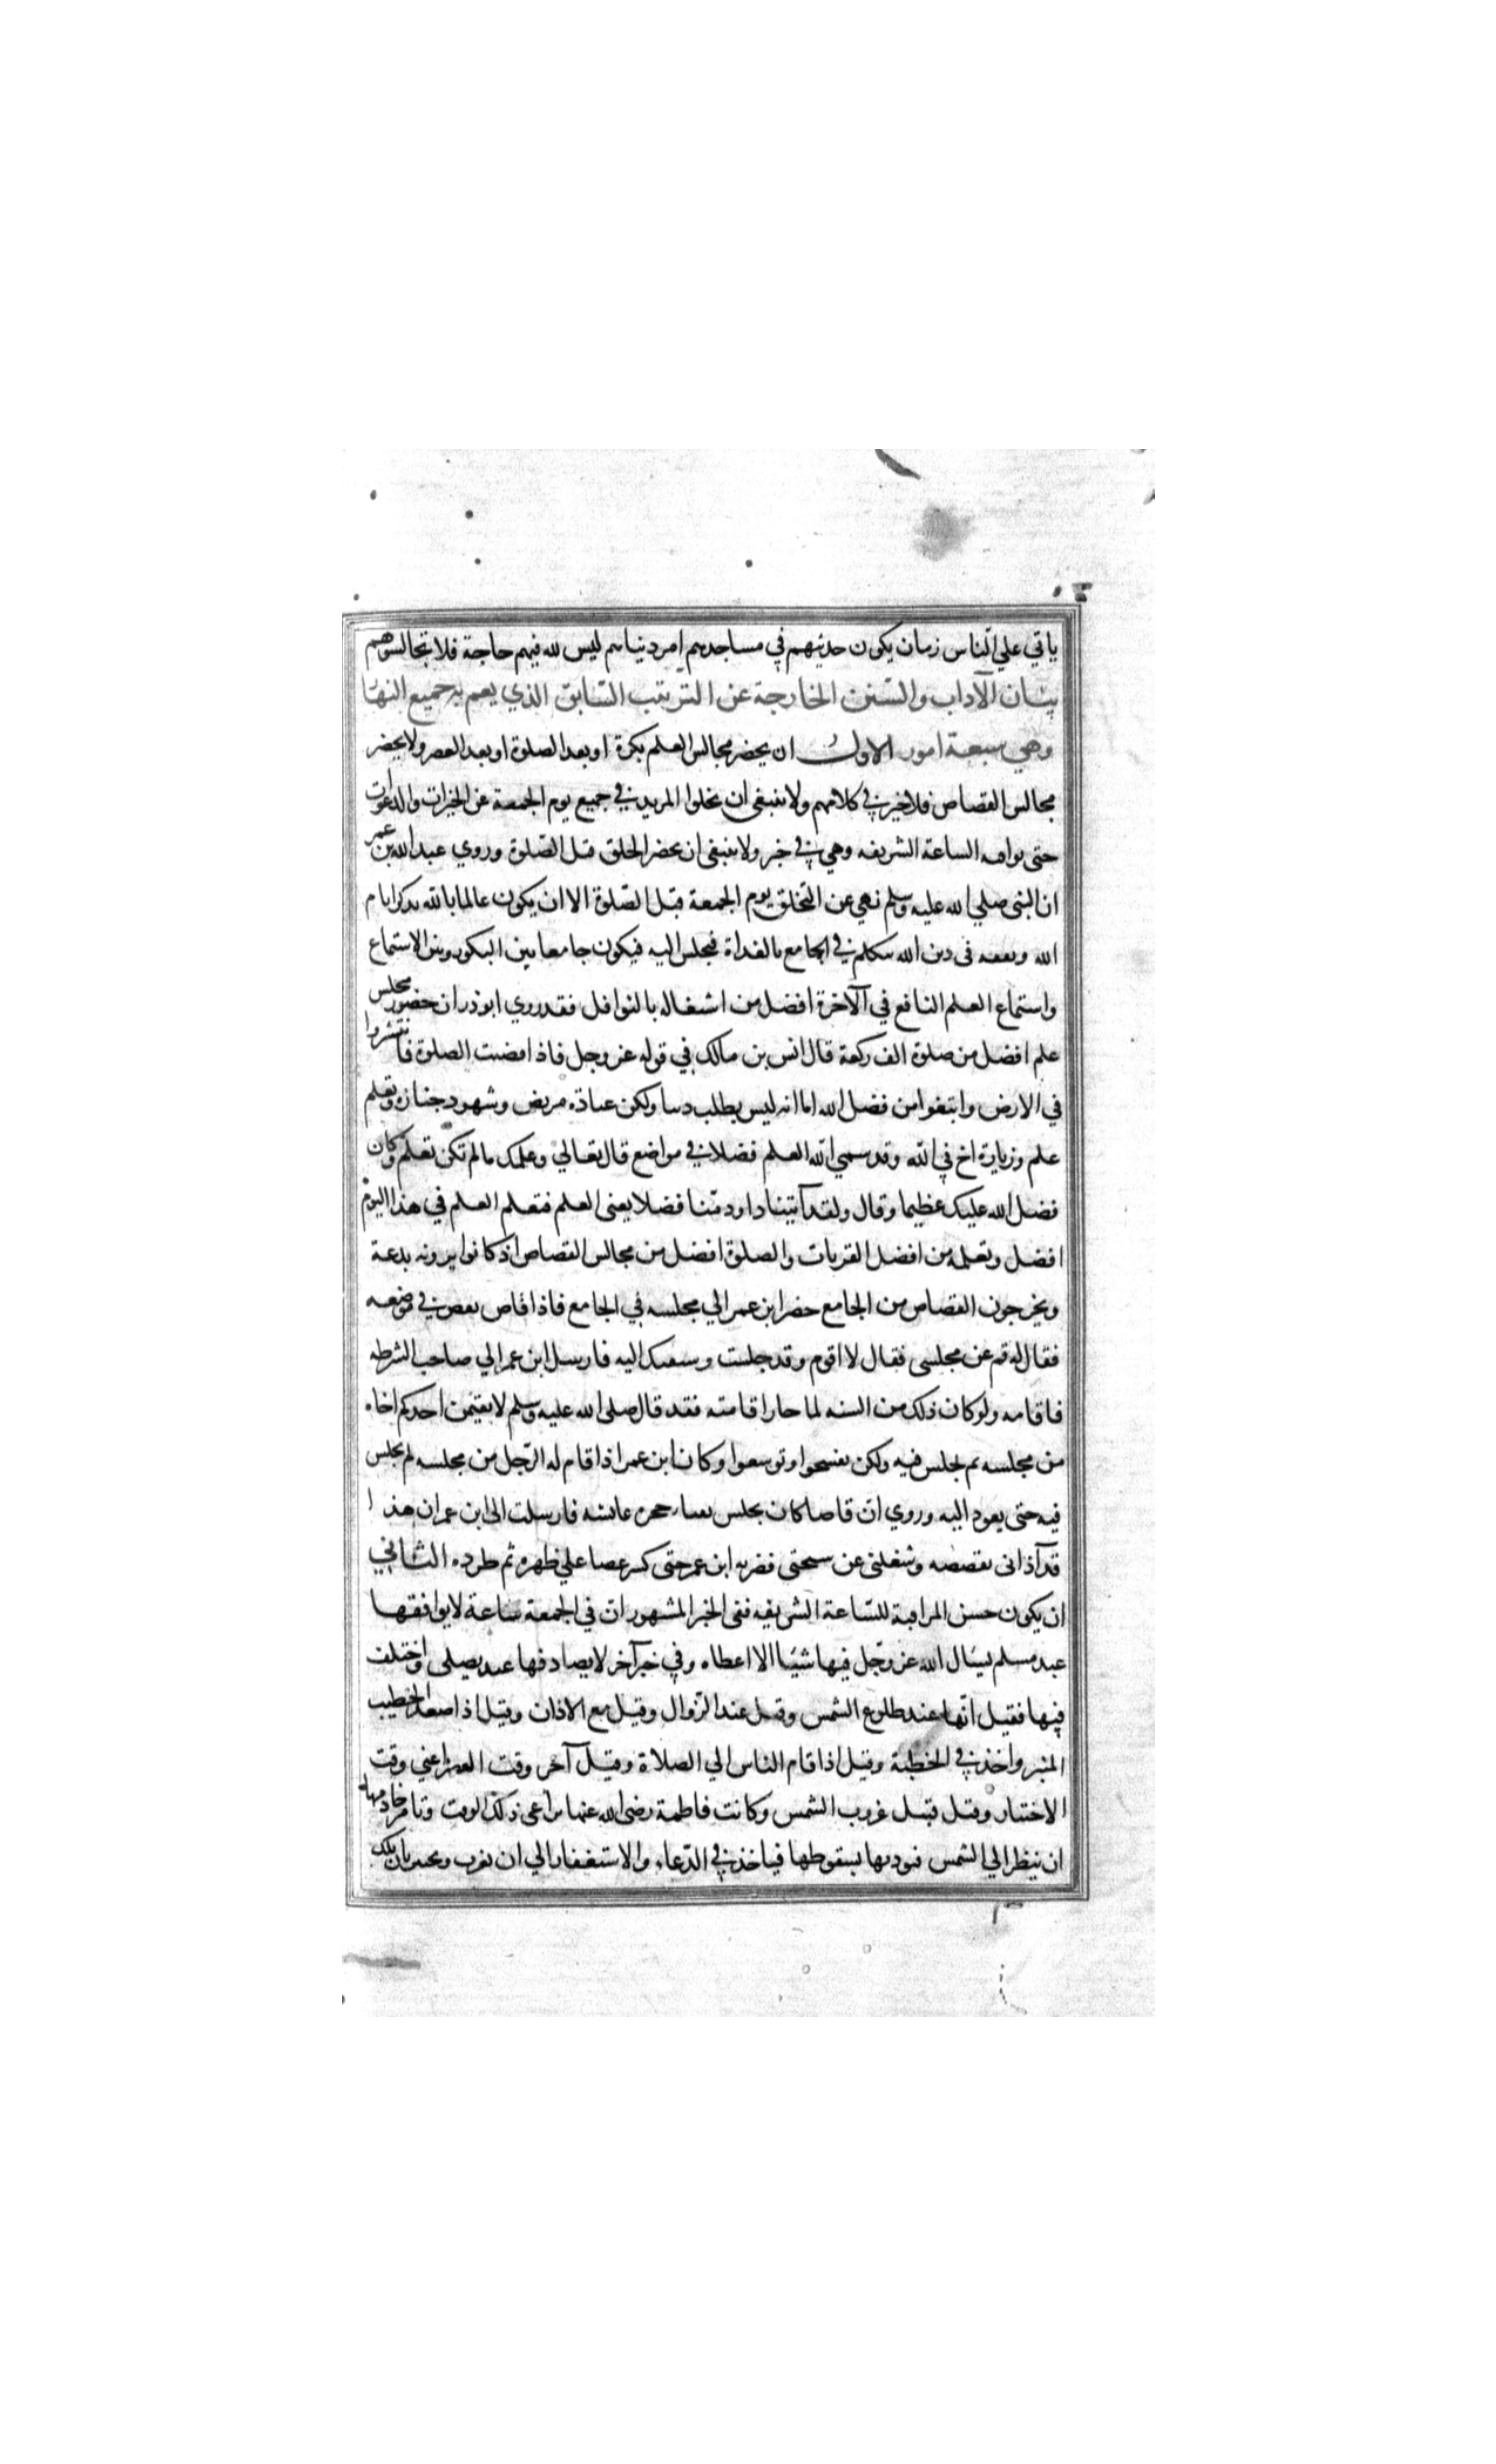 ياتي علي الناس زمان يكون حديثهم في مساجدهم امر دنياهم ليس لله فيهم حاجة فلا تجالسوهم
بيان الآداب والسنن الخارجة عن الترتيب السابق الذي يعم به جميع النهار
وهي سبعة امور الاول ان يحضر مجالس العلم بكرة او بعد الصلوة او بعد العصر ولا يحضر
مجالس القصاص فلا خير في كلامهم ولا ينبغي ان يخلوا المريد في جميع يوم الجمعة عن الخيرات والدعوات
حتى يوافيه الساعة الشريفه وهي في خير ولا ينبغي ان يحضر الحلق قبل الصلوة وروي عبد الله بن عمر
ان النبي صلي الله عليه وسلم نهي عن التحلق يوم الجمعة قبل الصلوة الا ان يكون عالما بالله يذكر بايام
الله ويفقه في دين الله يتكلم في الجامع بالغداة فيجلس اليه فيكون جامعا بين البكور وبين الاستماع
واستماع العلم النافع في الآخرة افضل من اشتغاله بالنوافل فقد روي ابو ذر ان حضور مجلس
علم افضل من صلوة الف ركعة قال انس بن مالك في قوله عز وجل فاذا قضيت الصلوة فانتشروا
في الارض وابتغوا من فضل الله اما انه ليس بطلب دنيا ولكن عيادة مريض وشهود جنازه وتعلم
علم وزيارة اخ في الله وقد سمي الله العلم فضلا في مواضع قال تعالي وعلمك ما لم تكن تعلم وكان
فضل الله عليك عظيما وقال ولقد آتينا داود منا فضلا يعني العلم فتعلم العلم في هذا اليوم
افضل وتعلمه من افضل القربات والصلوة افضل من مجالس القصاص اذ كانوا يرونه بدعة
ويخرجون القصاص من الجامع حضر ابن عمر الي مجلسه في الجامع فاذا قاص يقص في موضعه
فقال له قم عن مجلسي فقال لا اقوم وقد جلست وسبقتك اليه فارسل ابن عمر الي صاحب الشرطه
فاقامه ولو كان ذلك من السنه لما جاز اقامته فقد قال صلى الله عليه وسلم لا يقيمن احدكم اخاه
من مجلسه ثم يجلس فيه ولكن تفسحوا وتوسعوا وكان ابن عمر اذا قام له الرجل من مجلسه لم يجلس
فيه حتى يعود اليه وروي ان قاصا كان يجلس بفناء حجره عائشه فارسلت الى ابن عمر ان هذا
قد آذاني بقصصه وشغلني عن سبحتي فضربه ابن عمر حتى كسر عصا علي ظهره ثم طرده الثاني
ان يكون حسن المراقبة للساعة الشريفه ففي الخبر المشهور ان في الجمعة ساعة لا يوافقها
عبد مسلم يسال الله عز وجل فيها شيئا الا اعطاه وفي خبر آخر لا يصادفها عبد يصلي واختلف
فيها فقيل انها عند طلوع الشمس وقيل عند الزوال وقيل مع الاذان وقيل اذا صعد الخطيب
المنبر واخذ في الخطبة وقيل اذا قام الناس الي الصلاة وقيل آخر وقت العصر اعني وقت
الاختيار وقيل قبل غروب الشمس وكانت فاطمة رضي الله عنها تراعي ذلك الوقت وتامر خادمها
ان ينظر الي الشمس فيوذنها بسقوطها فياخذ في الدعاء والاستغفار الي ان تغرب وتخبر بان تلك